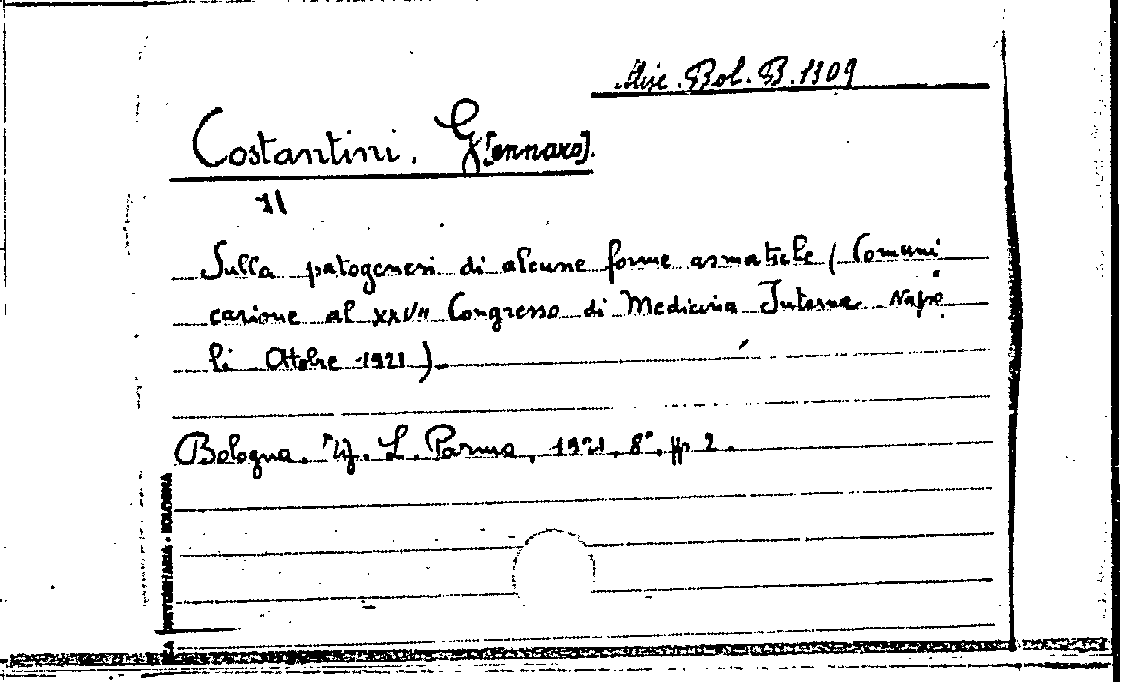 Misc. Bol. B. 1109
Costantini. G[ennaro].
Sulla patogenesi di alcune forme asmatiche (Comuni
cazione al XXVII Congresso di Medicina Interna Napo
li Ottobre 1921).
Bologna. Tip. L. Parma, 1921, 8°, pp 2.
BOLOGNA